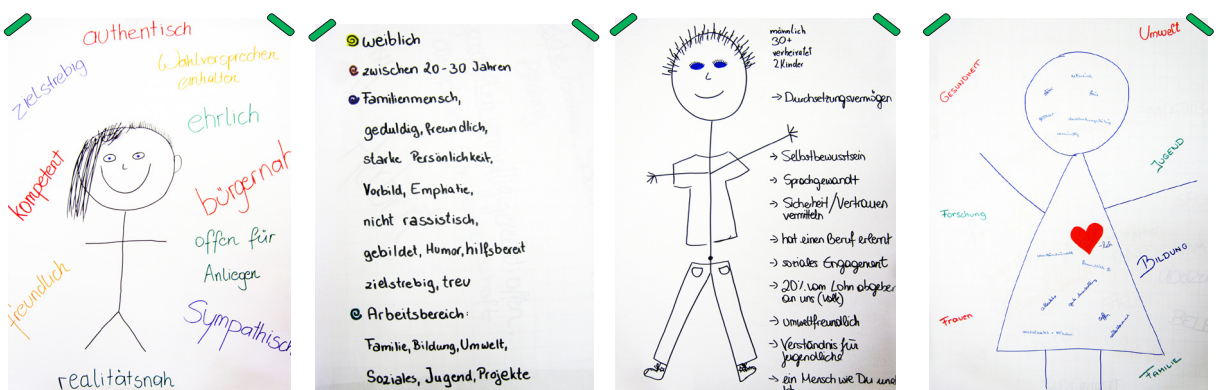 authentisch
Wahlversprechen
einhalten
zielstrebig
ehrlich
kompetent
bürgernah
offen für
Anliegen
freundlich
Sympathisch
realitätsnah
weiblich
zwischen 20-30 Jahren
Familienmensch,
geduldig, freundlich,
starke Persönlichkeit,
Vorbild, Emphatie,
nicht rassistisch,
gebildet, Humor, hilfsbereit
zielstrebig, treu
Arbeitsbereich:
Familie, Bildung, Umwelt,
Soziales, Jugend, Projekte
männlich
30+
verheiratet
2 Kinder
→ Durchsetzungsvermögen
→ Selbstbewusstsein
→ Sprachgewandt
→ Sicherheit/Vertrauen
vermitteln
→ hat einen Beruf erlernt
→ soziales Engagement
→ 20% vom Lohn abgeben
an uns (Volk)
→ umweltfreundlich
→ Verständnis für
Jugendliche
→ ein Mensch wie Du und
Umwelt
GESUNDHEIT
JUGEND
Forschung
BILDUNG
Frauen
FAMILIE